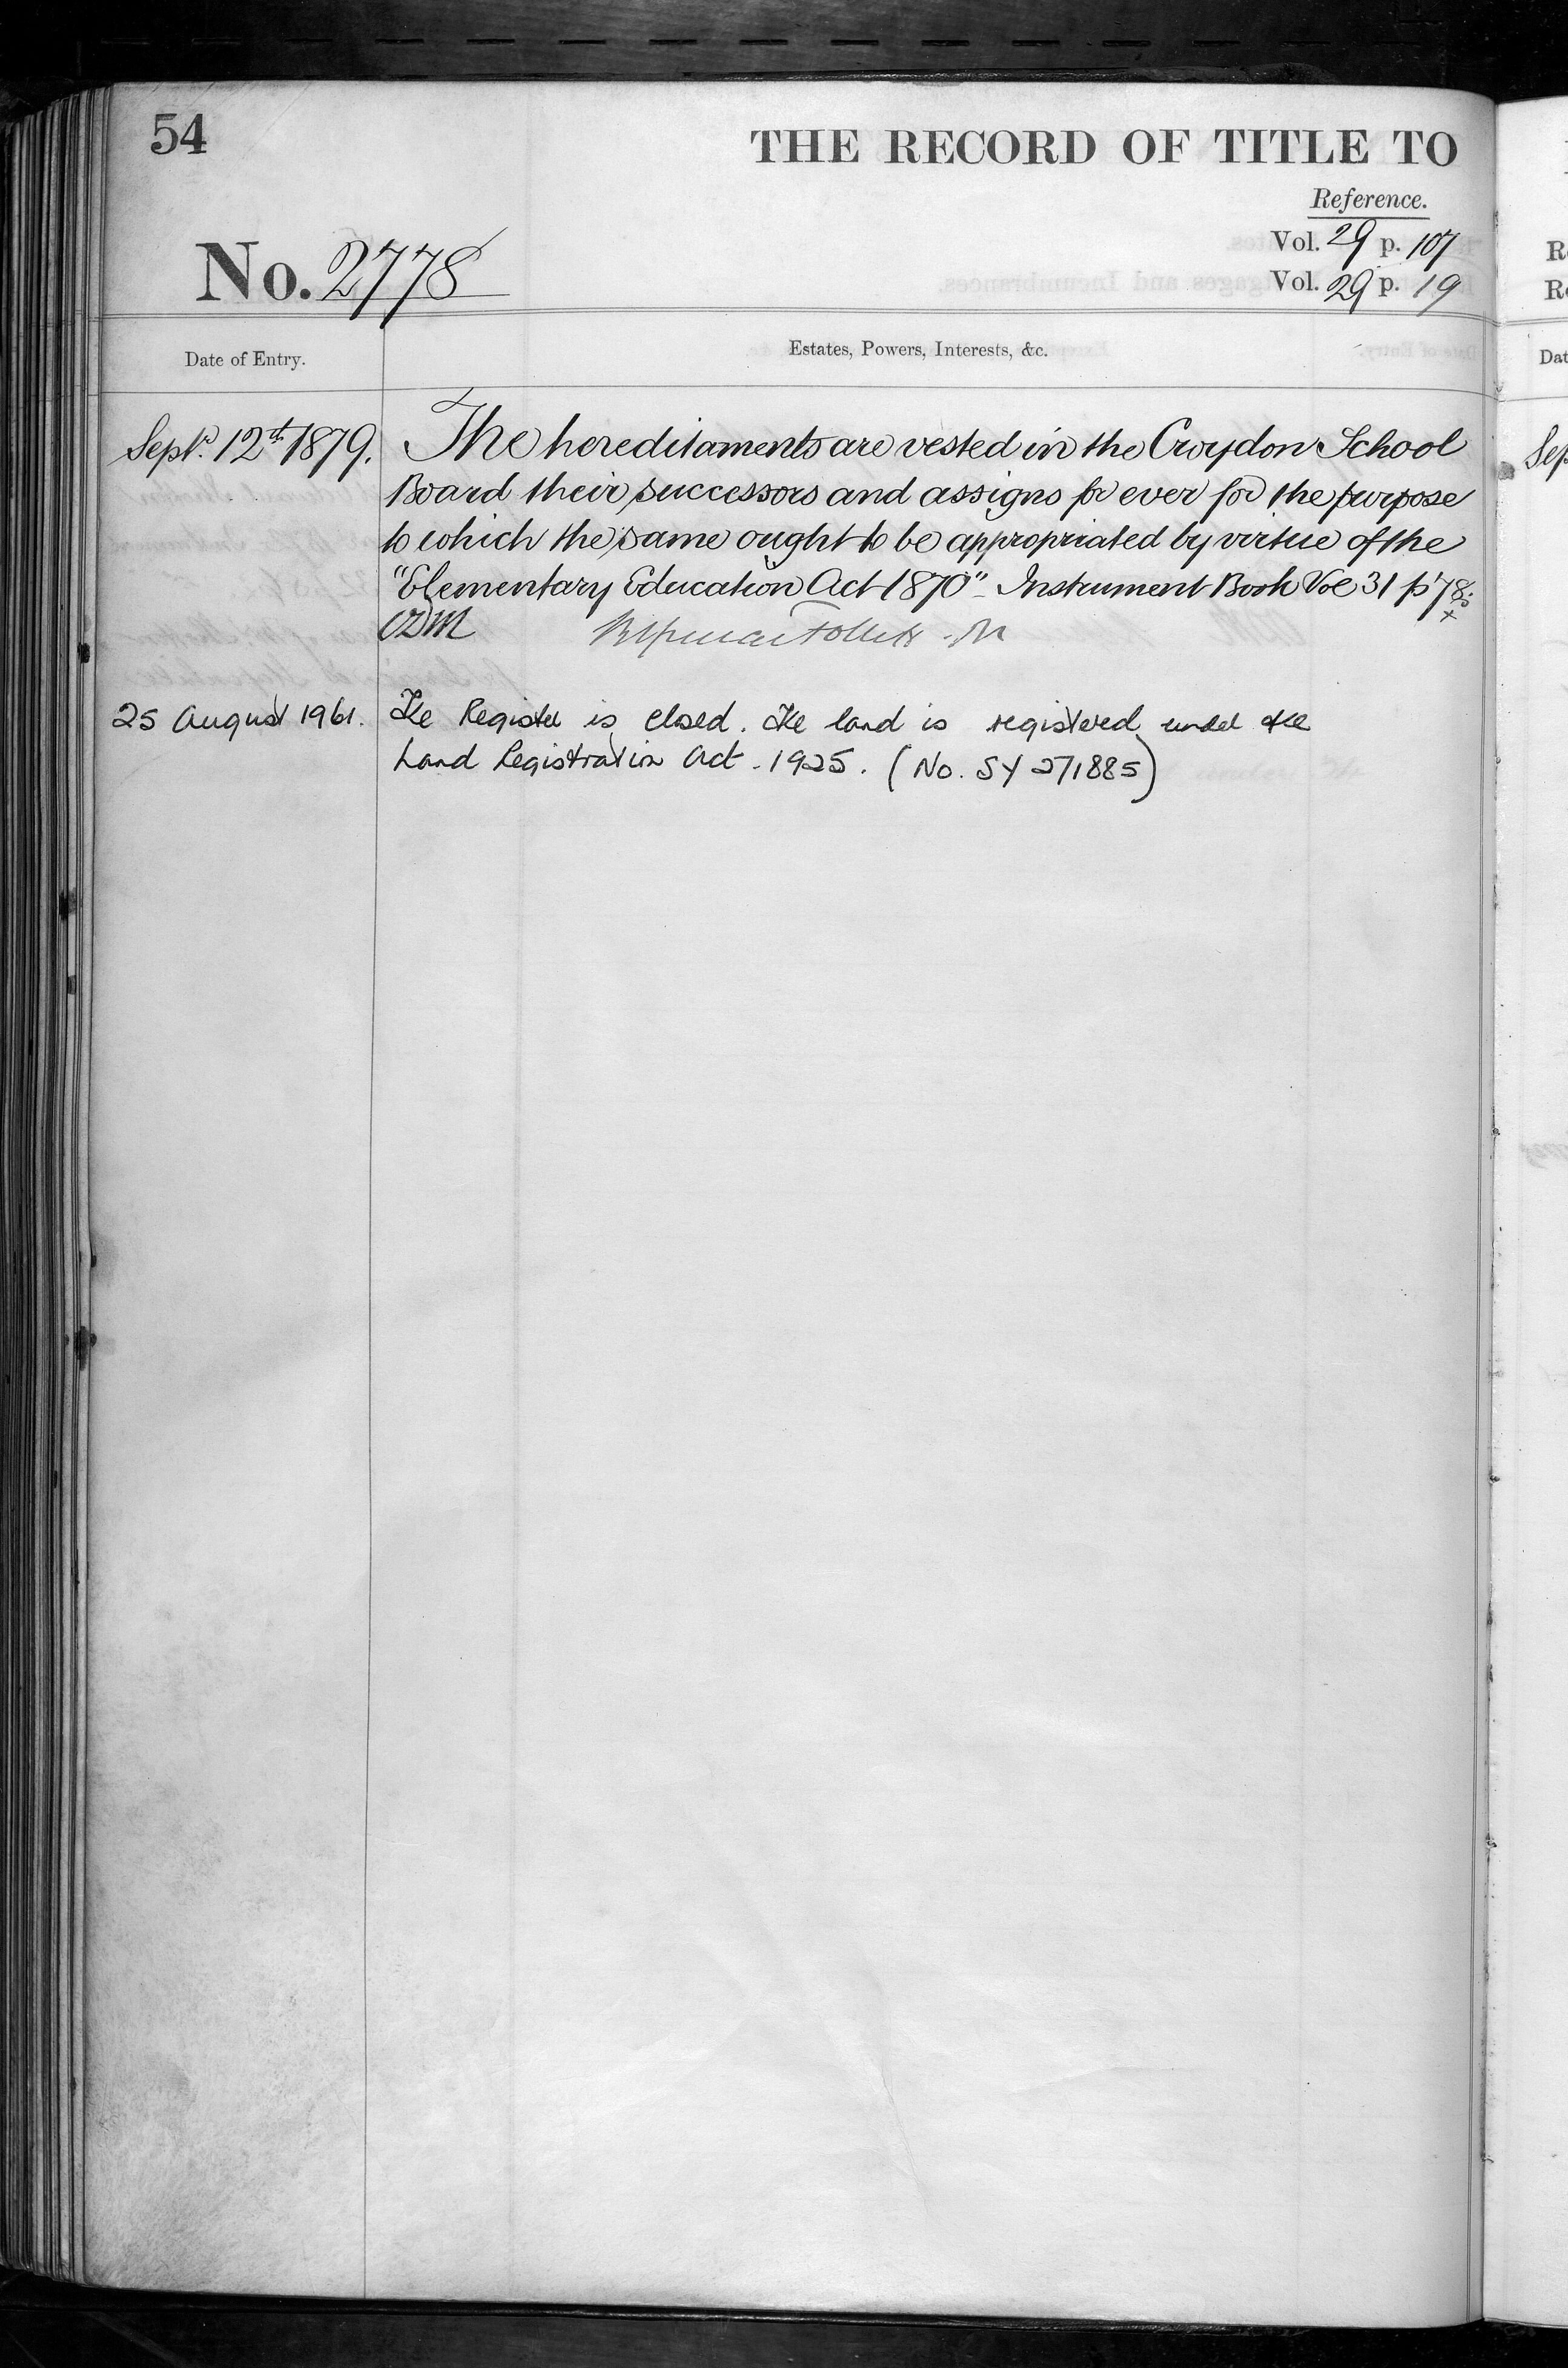 54
THE RECORD OF TITLE TO
Reference.
No. 2778
Vol. 29 p. 107
Vol. 29 p. 19
Date of Entry.
Estates, Powers, Interests, &c.
Septr. 12th 1879. The hereditaments are vested in the Croydon School
Board their successors and assigns for ever for the purpose
to which the same ought to be appropriated by virtue of the
"Elementary Education Act 1870" - Instrument Book Vol 31 p 78.
25 August 1961. The Register is closed. The land is registered under the
Land Registration Act - 1925. (No. SY 271885)
R
R
Dat
Sep